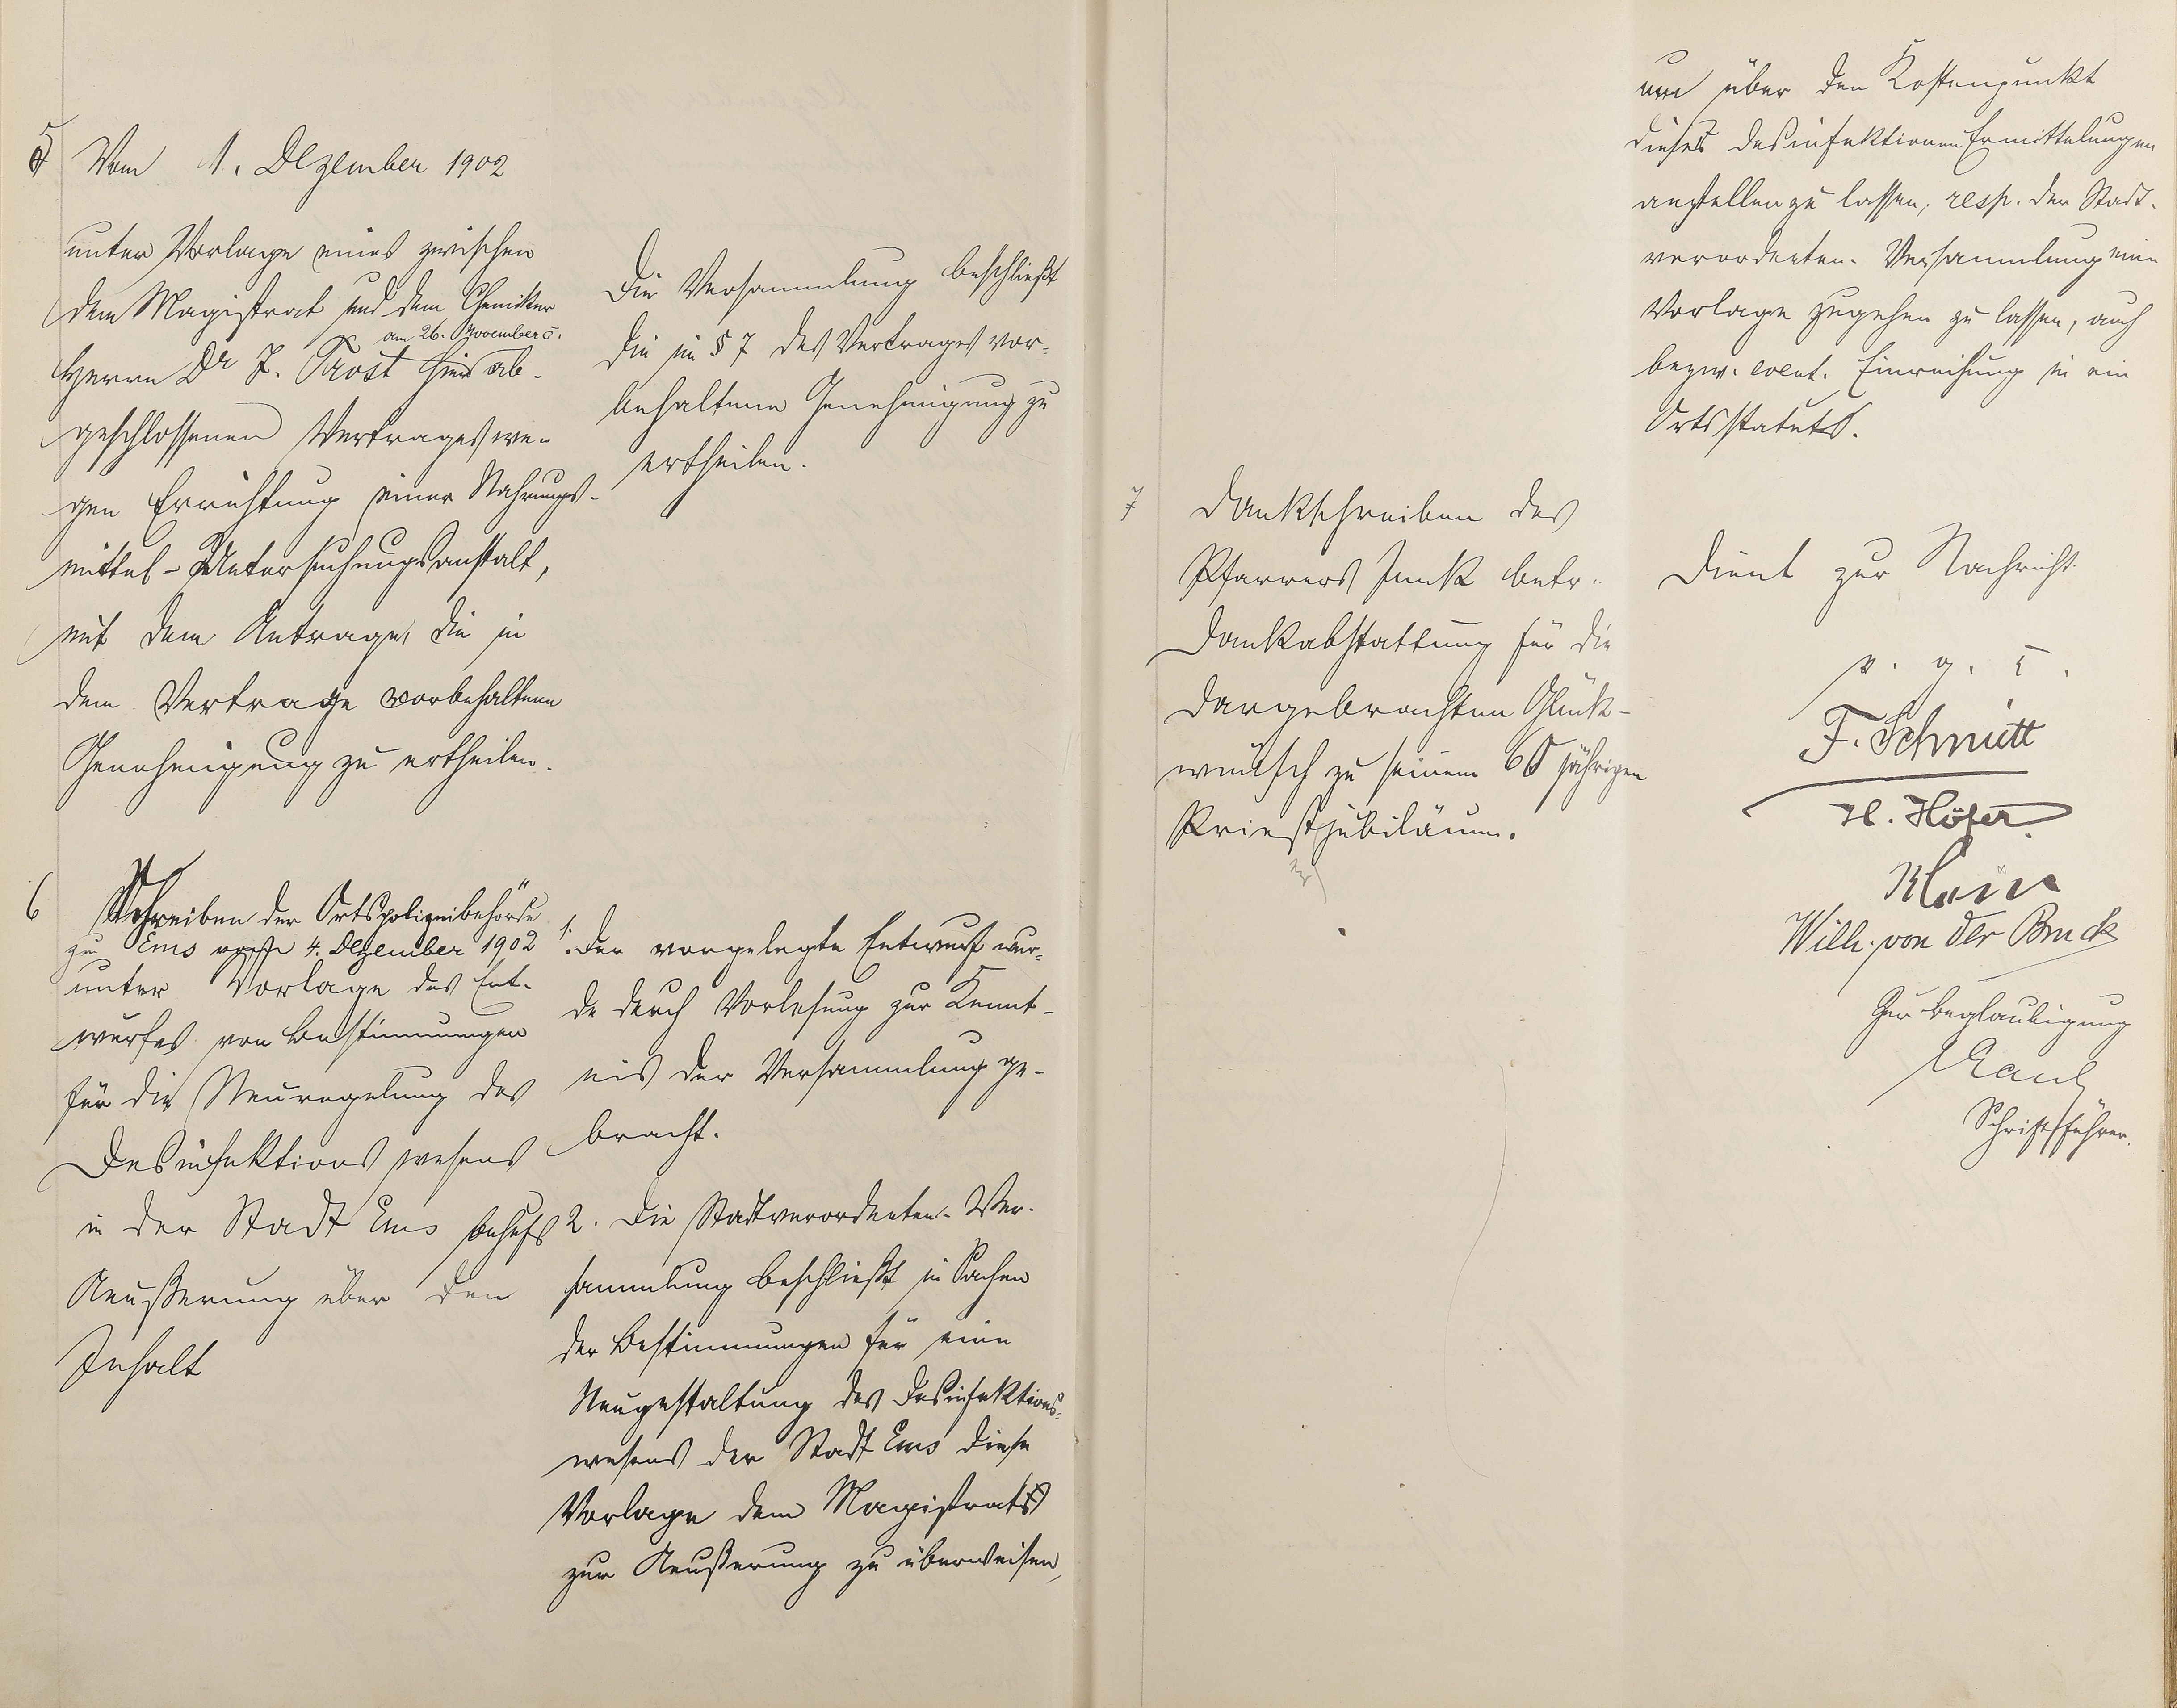 5 Vom 1. Dezember 1902
unter Vorlage eines zwischen
dem Magistrat und dem Chemiker
am 26. November c.
Herrn Dr J. Trost hier ab-
geschlossenen Vertrages we-
gen Errichtung einer Nahrungs-
mittel-Untersuchungsanstalt,
mit dem Antrage, die in
dem Vertrage vorbehaltene
Genehmigung zu ertheilen.
Die Versammlung beschließt
die in § 7 des Vertrages vor-
behaltene Genehmigung zu
ertheilen.
6 Schreiben der Ortspolizeibehörde
zu Ems vom 4. Dezember 1902
unter Vorlage des Ent-
wurfes von Bestimmungen
für die Neuregelung des
Desinfektionswesens
in der Stadt Ems behufs
Aeußerung über den
Inhalt
1. Der vorgelegte Entwurf wur-
de durch Vorlesung zur Kennt-
nis der Versammlung ge-
bracht.
2. Die Stadtverordneten-Ver-
sammlung beschließt in Sachen
der Bestimmungen für eine
Neugestaltung des Desinfektions-
wesens der Stadt Ems diese
Vorlage dem Magistrats
zur Aeußerung zu überweisen,
um über den Kostenpunkt
dieses Desinfektionen Ermittelungen
anstellen zu lassen, resp. der Stadt-
verordneten-Versammlung eine
Vorlage zugehen zu lassen, auch
bezw. event. Einreihung in ein
Ortsstatuts.
7 Dankschreiben des
Pfarrers Junk betr.
Dankabstattung für die
dargebrachten Glück-
wünsch zu seinem 60 jährigen
Priestjubiläum.
Dient zur Nachricht.
v. g. u.
F. Schmitt
H. Höfer
Klein
Willh. von der Bruck
Zur Beglaubigung
Kaul
Schriftführer.